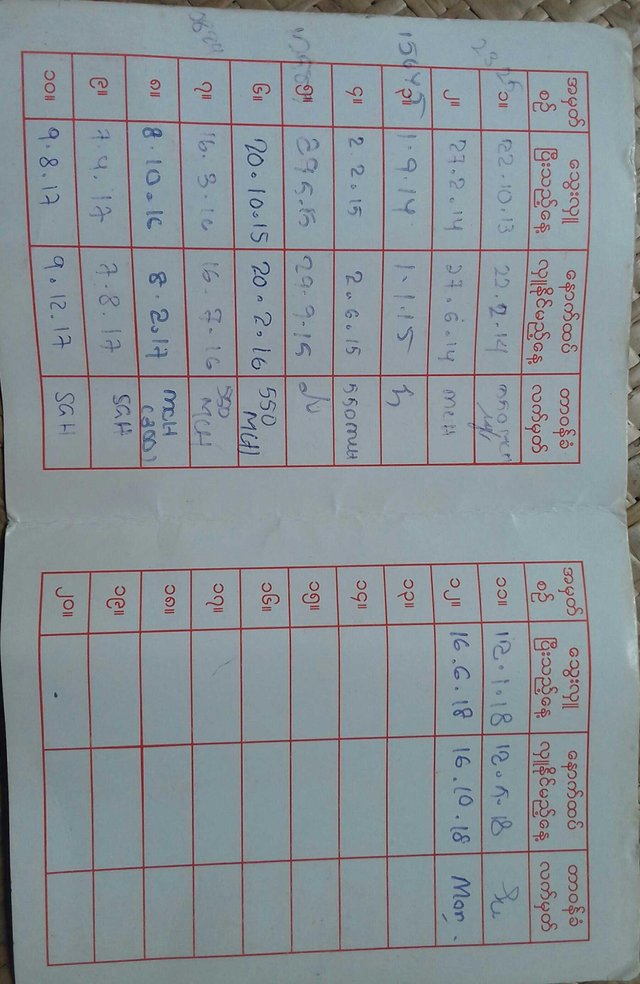 အမှတ်စဉ် သွေးလှူပြီးသည့်နေ့ နောက်ထပ်လှူနိုင်မည့်နေ့ တာဝန်ခံလက်မှတ်
၁။ 22.10.13 22.2.14
၂။ 27.2.14 27.6.14 mcH
၃။ 1.9.14 1.1.15
၄။ 2.2.15 2.6.15
၅။ 29.9.15
၆။ 20.10.15 20.2.16 550 MCH
၇။ 16.3.16 16.7.16 550 MCH
၈။ 8.10.16 8.2.17 mcH
၉။ 7.4.17 7.8.17 SGH
၁၀။ 9.8.17 9.12.17 SGH
အမှတ်စဉ် သွေးလှူပြီးသည့်နေ့ နောက်ထပ်လှူနိုင်မည့်နေ့ တာဝန်ခံလက်မှတ်
၁၁။ 12.1.18 12.5.18
၁၂။ 16.6.18 16.10.18 Mon
၁၃။
၁၄။
၁၅။
၁၆။
၁၇။
၁၈။
၁၉။
၂၀။